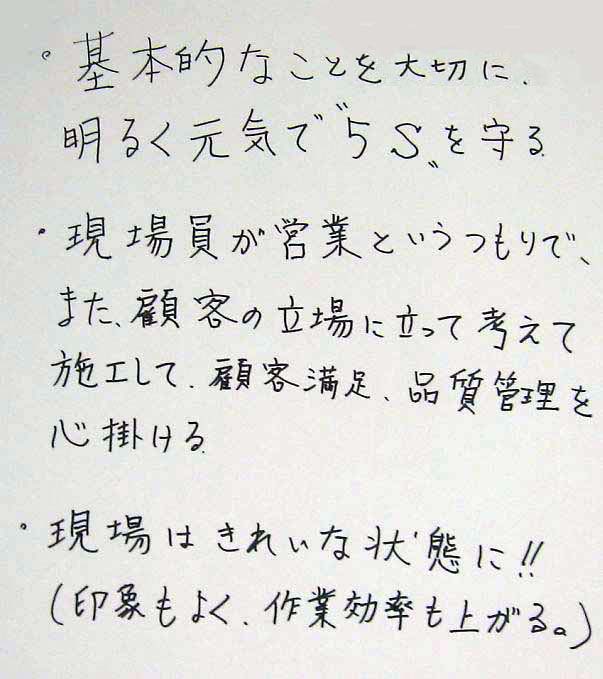 ・基本的なことを大切に、
明るく元気で"5S"を守る
・現場員が営業というつもりで、
また、顧客の立場に立って考えて
施工して、顧客満足、品質管理を
心掛ける
・現場はきれいな状態に!!
(印象もよく、作業効率も上がる。)